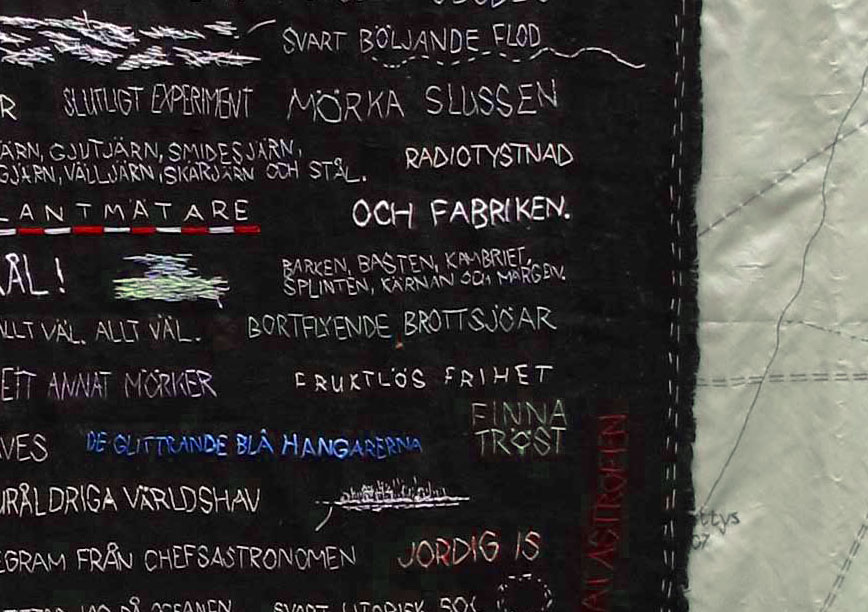 SVART BÖLJANDE FLOD
R SLUTLIGT EXPERIMENT MÖRKA SLUSSEN
ÄRN, GJUTJÄRN, SMIDESJÄRN,
GJÄRN, VÄLLJÄRN, SKÄRJÄRN OCH STÅL.
RADIOTYSTNAD
LANTMÄTARE OCH FABRIKEN.
ÅL!
BARKEN, BASTEN, KAMBRIET,
SPLINTEN, KÄRNAN OCH MÄRGEN.
ALLT VÄL. ALLT VÄL. BORTFLYENDE BROTTSJÖAR
ETT ANNAT MÖRKER FRUKTLÖS FRIHET
FINNA
TRÖST
VES DE GLITTRANDE BLÅ HANGARERNA
URÅLDRIGA VÄRLDSHAV
EGRAM FRÅN CHEFSASTRONOMEN JORDIG IS
ATASTROFEN